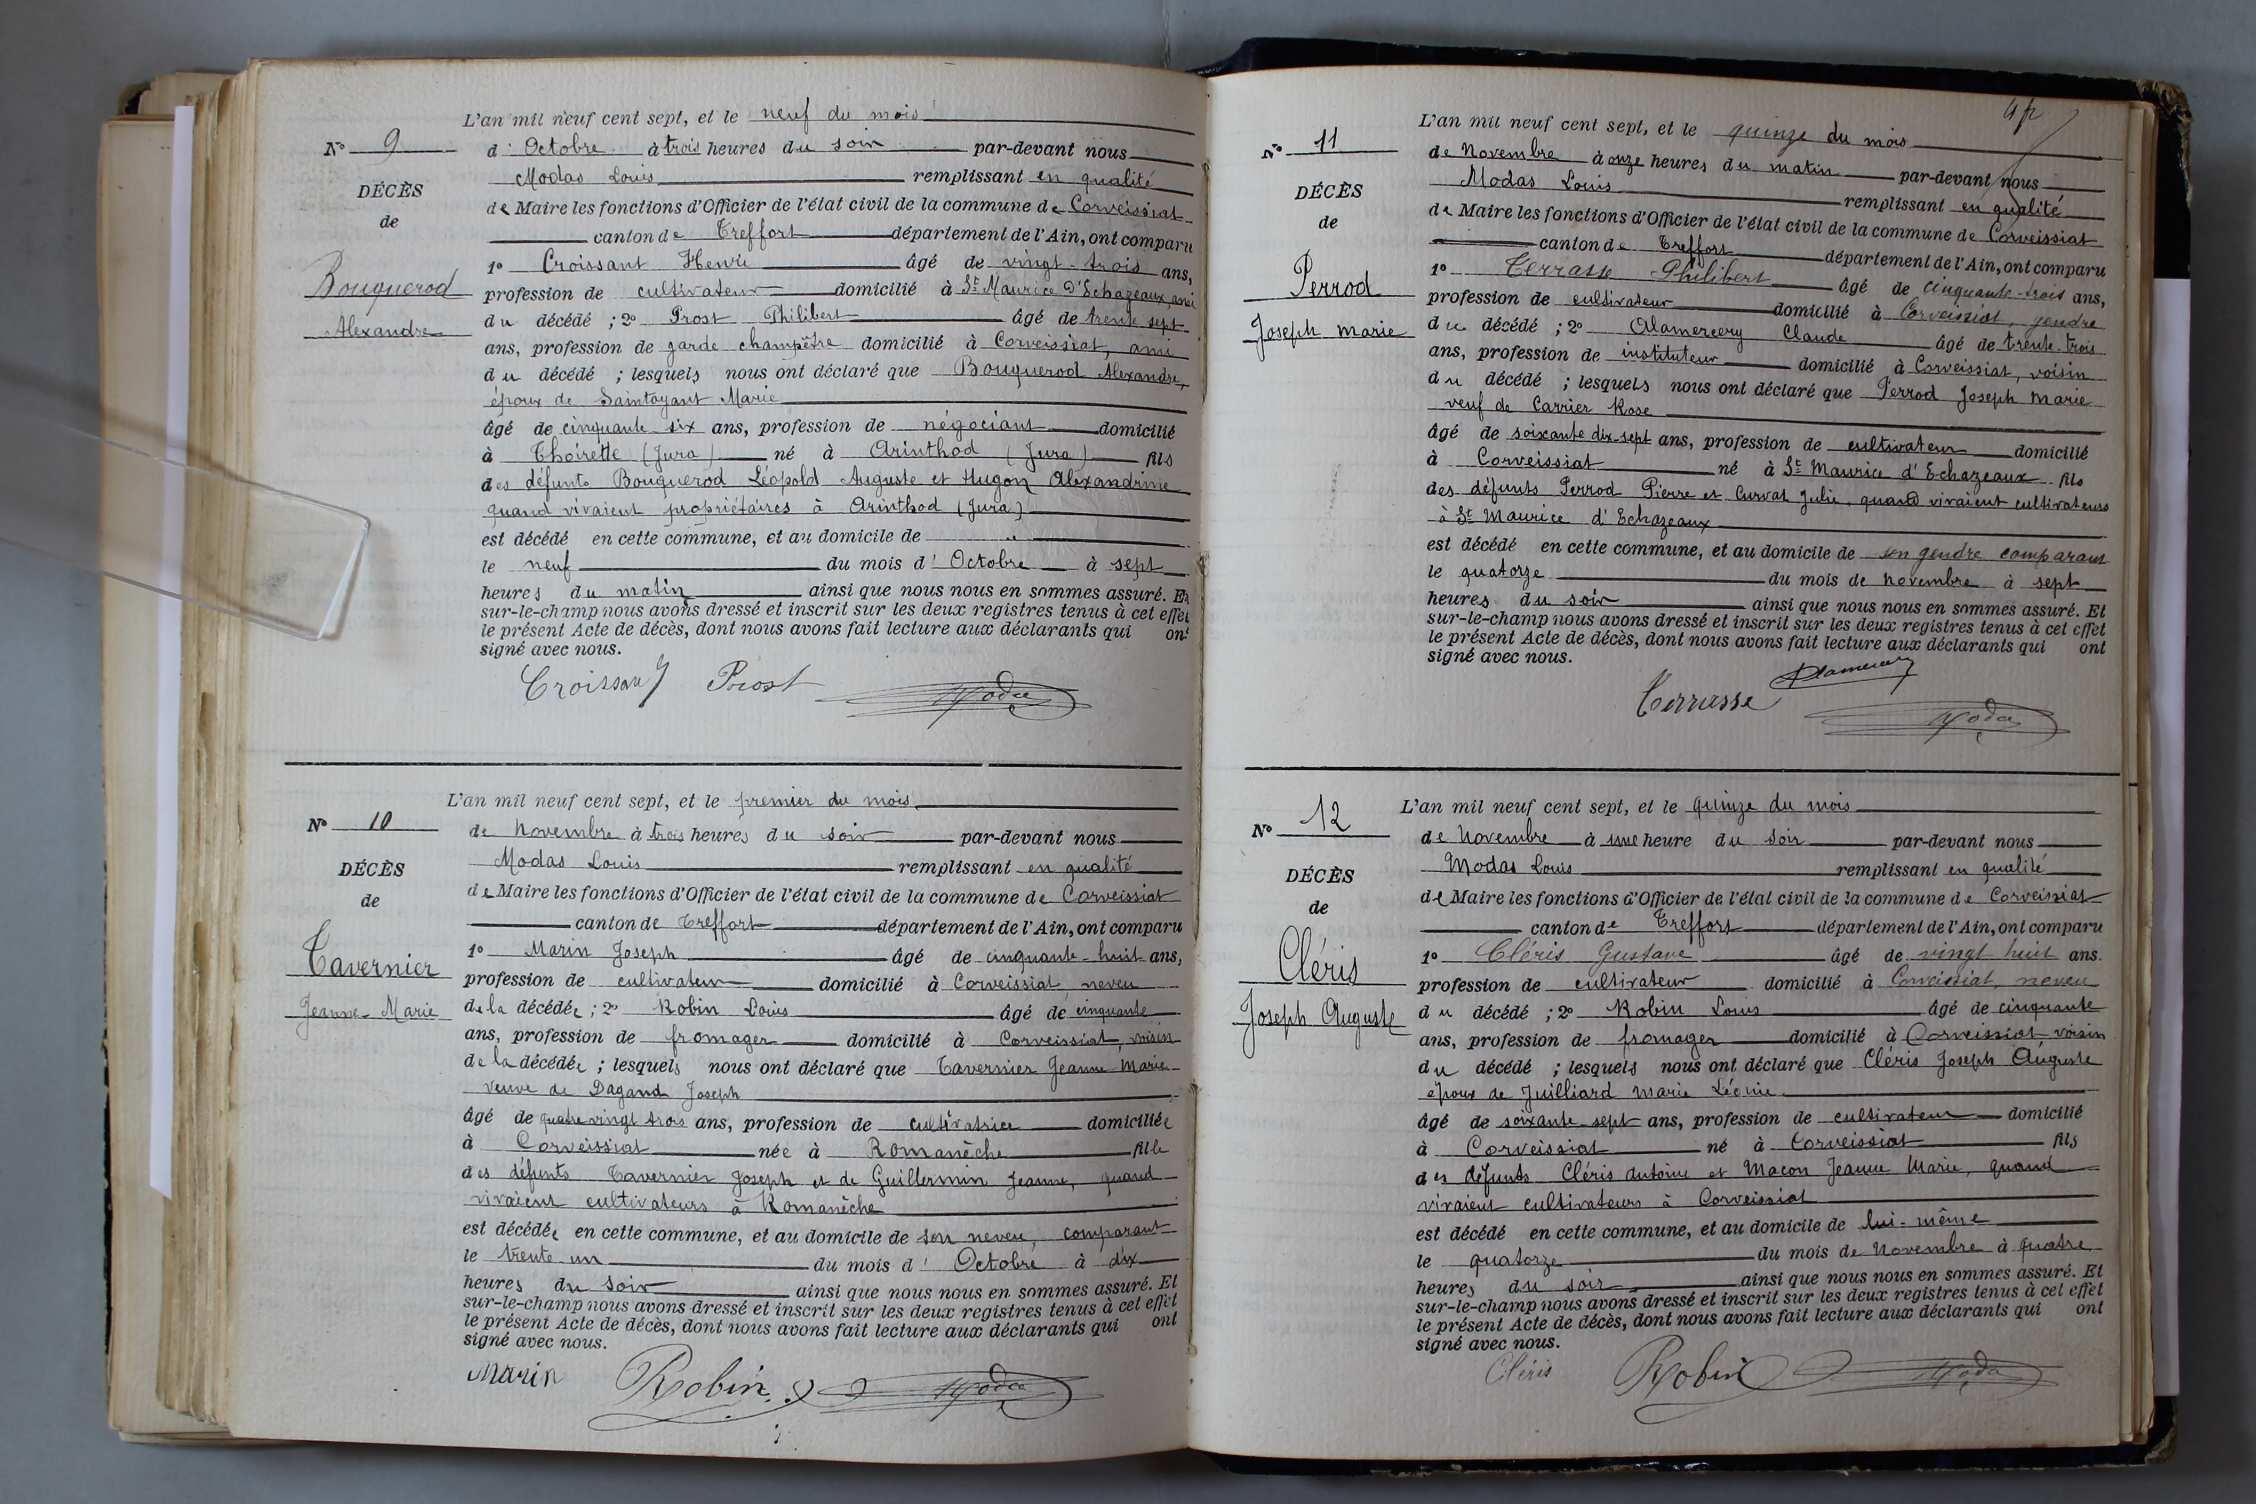 N° 9
DÉCÈS
de
Bouquerod
Alexandre
L'an mil neuf cent sept, et le neuf du mois
d'Octobre à trois heures du soir par-devant nous
Modas Louis remplissant en qualité
de Maire les fonctions d'Officier de l'état civil de la commune de Corveissiat
canton de Treffort département de l'Ain, ont comparu
1° Croissant Henri âgé de vingt-trois ans,
profession de cultivateur domicilié à St Maurice D'Echazeaux, ami
du décédé ; 2° Prost Philibert âgé de trente sept
ans, profession de garde champêtre domicilié à Corveissiat, ami
du décédé ; lesquels nous ont déclaré que Bouquerod Alexandre,
époux de Saintoyant Marie
âgé de cinquante six ans, profession de négociant domicilié
à Thoirette (Jura) né à Arinthod (Jura) fils
des défunts Bouquerod Léopold Auguste et Hugon Alexandrine
quand vivaient propriétaires à Arinthod (Jura)
est décédé en cette commune, et au domicile de "
le neuf du mois d'Octobre à sept
heures du matin ainsi que nous nous en sommes assuré. Et
sur-le-champ nous avons dressé et inscrit sur les deux registres tenus à cet effet
le présent Acte de décès, dont nous avons fait lecture aux déclarants qui ont
signé avec nous.
Croissant Prost Modas
N° 10
DÉCÈS
de
Tavernier
Jeanne-Marie
L'an mil neuf cent sept, et le premier du mois
de Novembre à trois heures du soir par-devant nous
Modas Louis remplissant en qualité
de Maire les fonctions d'Officier de l'état civil de la commune de Corveissiat
canton de Treffort département de l'Ain, ont comparu
1° Marin Joseph âgé de cinquante-huit ans,
profession de cultivateur domicilié à Corveissiat neveu
de la décédée ; 2° Robin Louis âgé de cinquante
ans, profession de fromager domicilié à Corveissiat, voisin
de la décédée ; lesquels nous ont déclaré que Tavernier Jeanne Marie
veuve de Dagand Joseph
âgé de quatre vingt trois ans, profession de cultivatrice domiciliée
à Corveissiat née à Romanèche fille
des défunts Tavernier Joseph et de Guillermin Jeanne, quand
vivaient cultivateurs à Romanèche
est décédée en cette commune, et au domicile de son neveu, comparant
le trente un du mois d'Octobre à dix
heures du soir ainsi que nous nous en sommes assuré. Et
sur-le-champ nous avons dressé et inscrit sur les deux registres tenus à cet effet
le présent Acte de décès, dont nous avons fait lecture aux déclarants qui ont
signé avec nous.
Marin Robin Modas
N° 11
DÉCÈS
de
Perrod
Joseph Marie
L'an mil neuf cent sept, et le quinze du mois
de Novembre à onze heures du matin par-devant nous
Modas Louis remplissant en qualité
de Maire les fonctions d'Officier de l'état civil de la commune de Corveissiat
canton de Treffort département de l'Ain, ont comparu
1° Terrasse Philibert âgé de cinquante-trois ans,
profession de cultivateur domicilié à Corveissiat, gendre
du décédé ; 2° Alamercery Claude âgé de trente-trois
ans, profession de instituteur domicilié à Corveissiat, voisin
du décédé ; lesquels nous ont déclaré que Perrod Joseph Marie
veuf de Carrier Rose
âgé de soixante dix-sept ans, profession de cultivateur domicilié
à Corveissiat né à St Maurice d'Echazeaux fils
des défunts Perrod Pierre et Curvat Julie, quand vivaient cultivateurs
à St Maurice d'Echazeaux
est décédé en cette commune, et au domicile de son gendre comparant
le quatorze du mois de novembre à sept
heures du soir ainsi que nous nous en sommes assuré. Et
sur-le-champ nous avons dressé et inscrit sur les deux registres tenus à cet effet
le présent Acte de décès, dont nous avons fait lecture aux déclarants qui ont
signé avec nous.
Terrasse Alamercery Modas
N° 12
DÉCÈS
de
Cléris
Joseph Auguste
L'an mil neuf cent sept, et le quinze du mois
de Novembre à une heure du soir par-devant nous
Modas Louis remplissant en qualité
de Maire les fonctions d'Officier de l'état civil de la commune de Corveissiat
canton de Treffort département de l'Ain, ont comparu
1° Cléris Gustave âgé de vingt huit ans.
profession de cultivateur domicilié à Corveissiat, neveu
du décédé ; 2° Robin Louis âgé de cinquante
ans, profession de fromager domicilié à Corveissiat voisin
du décédé ; lesquels nous ont déclaré que Cléris Joseph Auguste
époux de Juilliard Marie Léonie
âgé de soixante-sept ans, profession de cultivateur domicilié
à Corveissiat né à Corveissiat fils
des défunts Cléris Antoine et Macon Jeanne Marie, quand
vivaient cultivateurs à Corveissiat
est décédé en cette commune, et au domicile de lui-même
le quatorze du mois de Novembre à quatre
heures du soir ainsi que nous nous en sommes assuré. Et
sur-le-champ nous avons dressé et inscrit sur les deux registres tenus à cet effet
le présent Acte de décès, dont nous avons fait lecture aux déclarants qui ont
signé avec nous.
Cléris Robin Modas